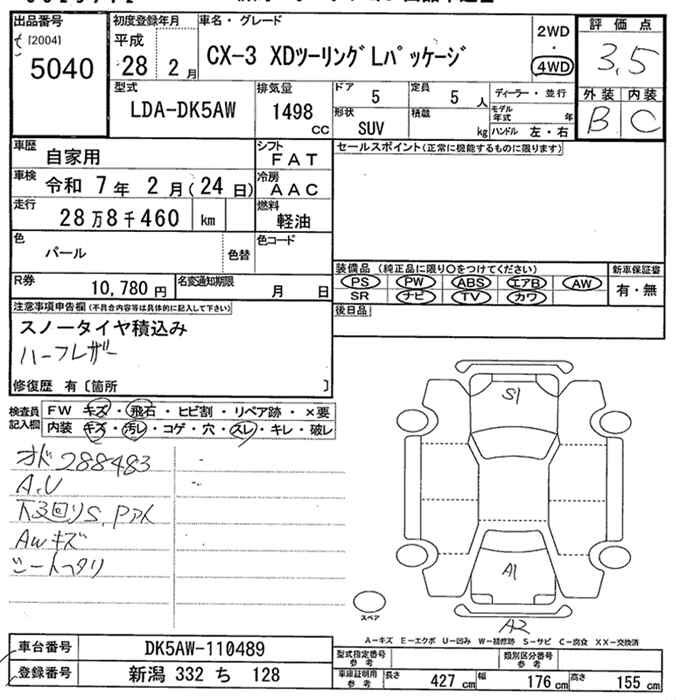 出品番号
[2004]
5040
初度登録年月
平成
28年 2月
車名・グレード
CX-3 XDツーリングLパッケージ
2WD
・
4WD
評価点
3.5
外装 内装
B C
型式
LDA-DK5AW
排気量
1498
cc
ドア 5
定員 5 人
形状 SUV
積載 kg
ディーラー・並行
モデル年式 年
ハンドル 左・右
車歴 自家用
シフト FAT
車検 令和 7年 2月(24日)
冷房 AAC
走行 28万8千460 km
燃料 軽油
色 パール
色替
色コード
R券 10,780円
名変通知期限 月 日
セールスポイント(正常に機能するものに限ります)
装備品 (純正品に限り○をつけてください)
PS PW ABS エアB AW
SR ナビ TV カワ
新車保証書
有・無
後日品
注意事項申告欄(不具合内容等は具体的に記入して下さい)
スノータイヤ積込み
ハーフレザー
修復歴 有〔箇所 〕
検査員記入欄
FW キズ・飛石・ヒビ割・リペア跡・×要
内装 キズ・汚レ・コゲ・穴・スレ・キレ・破レ
オド288483
A.U
下回りS.Pアト
AWキズ
シートヘタリ
S1
A1
A2
スペア
A-キズ E-エクボ U-凹み W-補修跡 S-サビ C-腐食 XX-交換済
車台番号 DK5AW-110489
登録番号 新潟 332 ち 128
型式指定番号 参考
類別区分番号 参考
車庫証明用 参考
長さ 427cm 幅 176cm 高さ 155cm